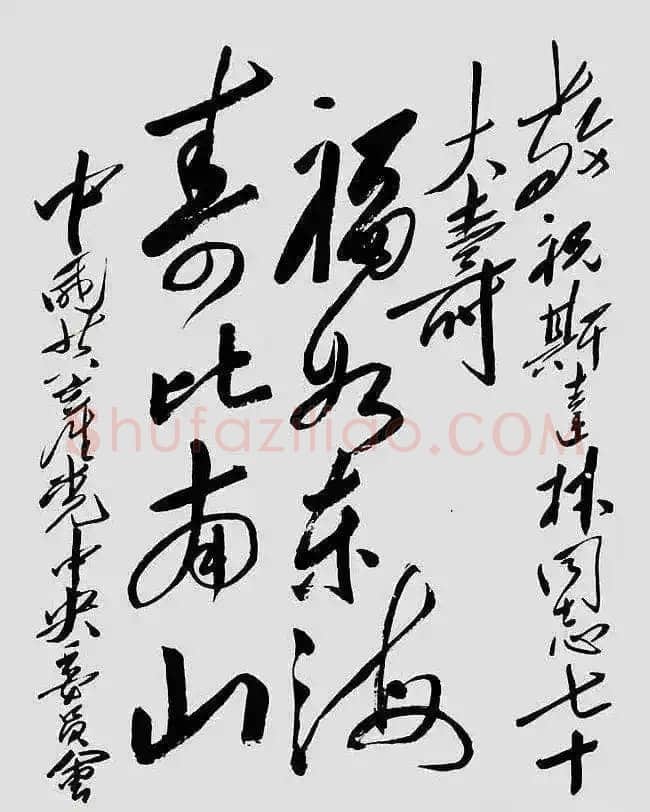 敬祝斯達林同志七十
大壽
福如东海
寿比南山
中國共產党中央委員會
Shufaziliao.COM